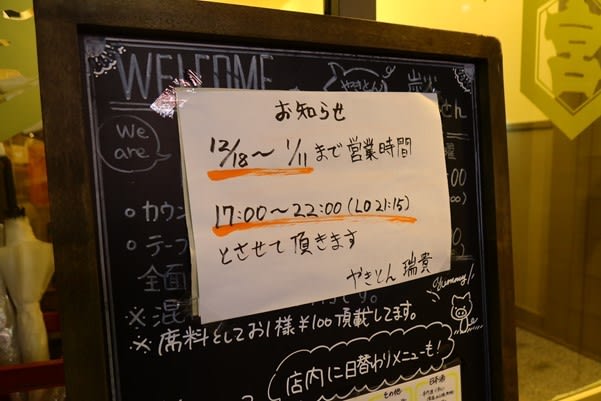 WELCOME
やきとん
炭火
We are
お知らせ
12/18〜1/11まで営業時間
17:00〜22:00(LO 21:15)
とさせて頂きます
やきとん 瑞貴
。カウン
。テーブ
全面
※混
※席料としてお1様¥100頂戴してます。
Yummy!
店内に日替わりメニューも!
その他
日本酒